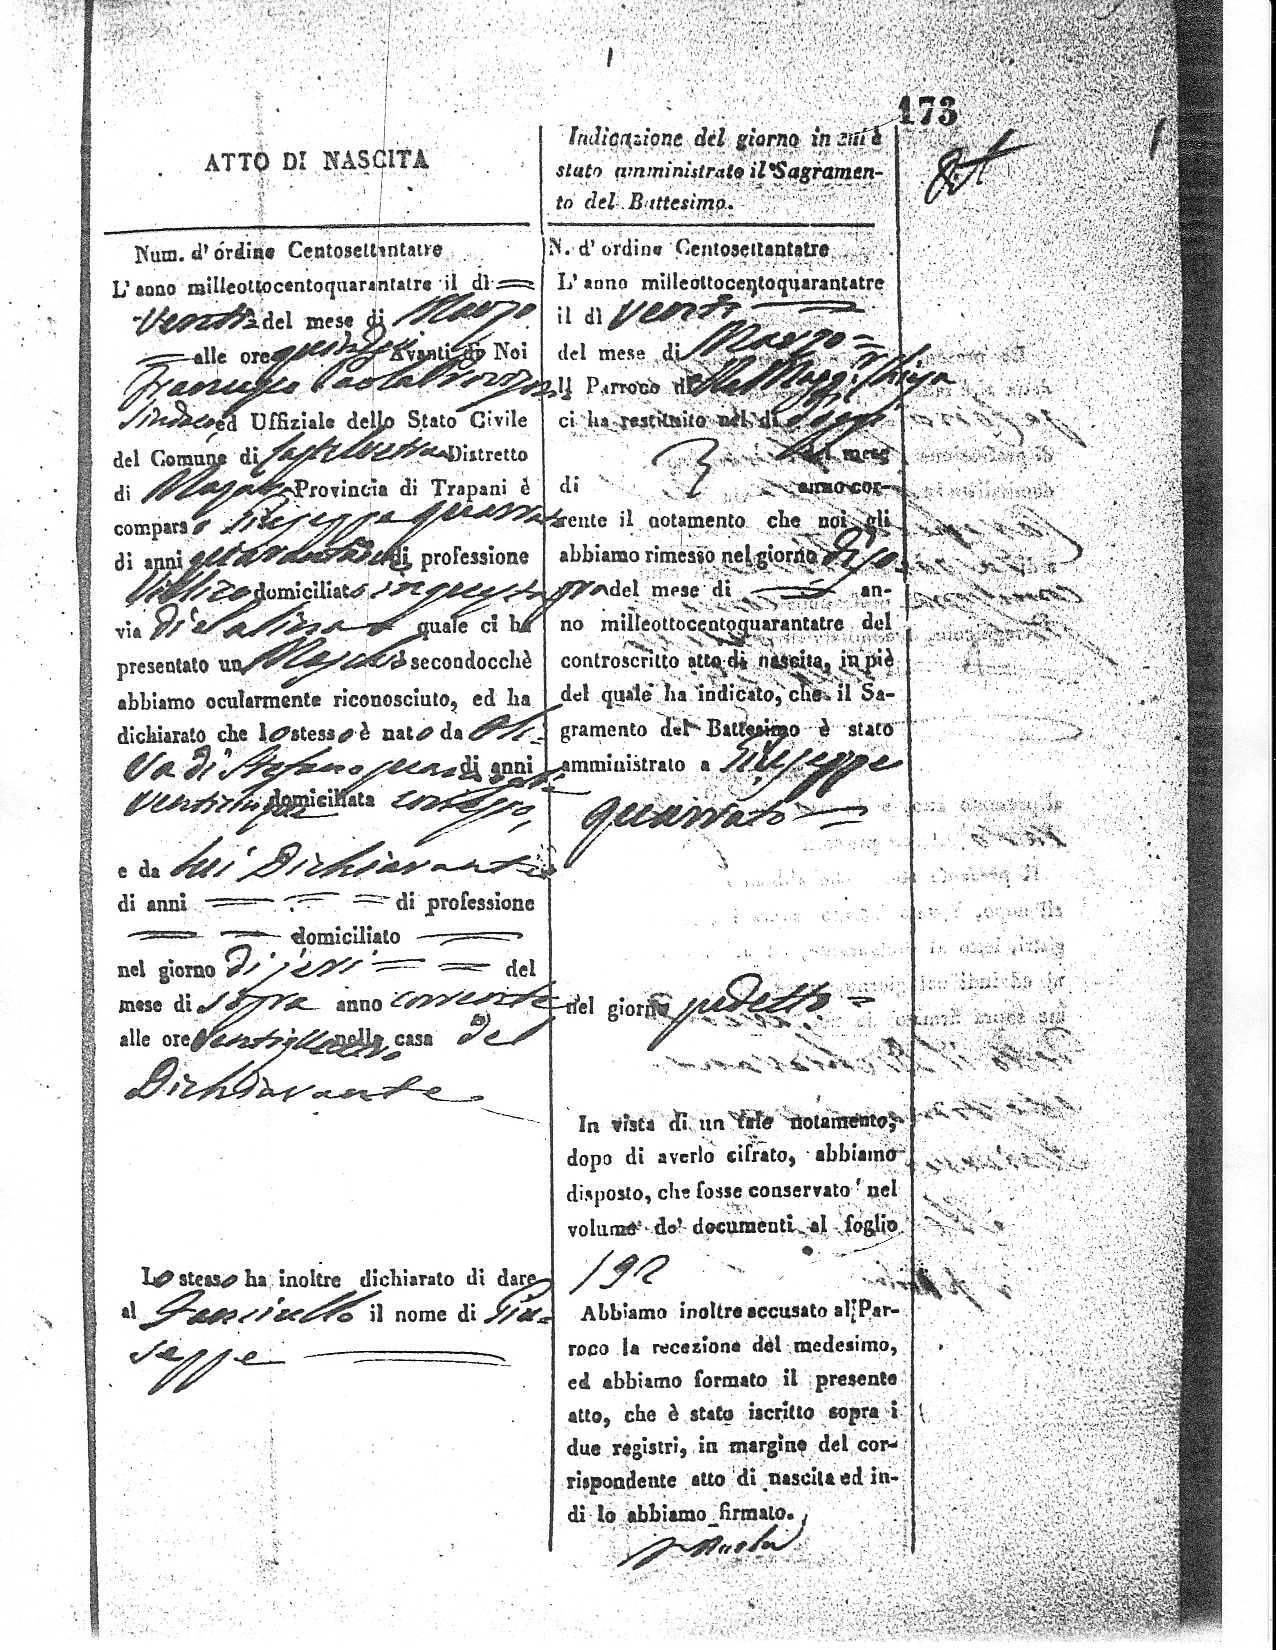 173
ATTO DI NASCITA
Num. d' ordine Centosettantatre
L' anno milleottocentoquarantatre il dì
Venti del mese di Marzo
alle ore quindici Avanti di Noi
Francesco Paola
Sindaco ed Uffiziale dello Stato Civile
del Comune di Distretto
di Mazara Provincia di Trapani è
comparso Giuseppe Quarrato
di anni di professione
Villico domiciliato in questa
via di quale ci ha
presentato un Maschio secondocchè
abbiamo ocularmente riconosciuto, ed ha
dichiarato che lo stesso è nato da Oli-
va di Stefano di anni
venticinque domiciliata
e da lui Dichiarante
di anni di professione
domiciliato
nel giorno di jeri del
mese di sopra anno corrente
alle ore nella casa del
Dichiarante
Lo stesso ha inoltre dichiarato di dare
al il nome di Giu-
seppe
Indicazione del giorno in cui è
stato amministrato il Sagramen-
to del Battesimo.
N. d' ordine Centosettantatre
L' anno milleottocentoquarantatre
il dì venti
del mese di Marzo
Il Parroco di Chiesa
ci ha restituito nel dì
del mese
di anno cor-
rente il notamento che noi gli
abbiamo rimesso nel giorno di so-
pra del mese di an-
no milleottocentoquarantatre del
controscritto atto di nascita, in piè
del quale ha indicato, che il Sa-
gramento del Battesimo è stato
amministrato a Giuseppe
Quarrato
nel giorno sudetto
In vista di un tale notamento,
dopo di averlo cifrato, abbiamo
disposto, che fosse conservato nel
volume de' documenti al foglio
192
Abbiamo inoltre accusato al Par-
roco la recezione del medesimo,
ed abbiamo formato il presente
atto, che è stato iscritto sopra i
due registri, in margine del cor-
rispondente atto di nascita ed in-
di lo abbiamo firmato.